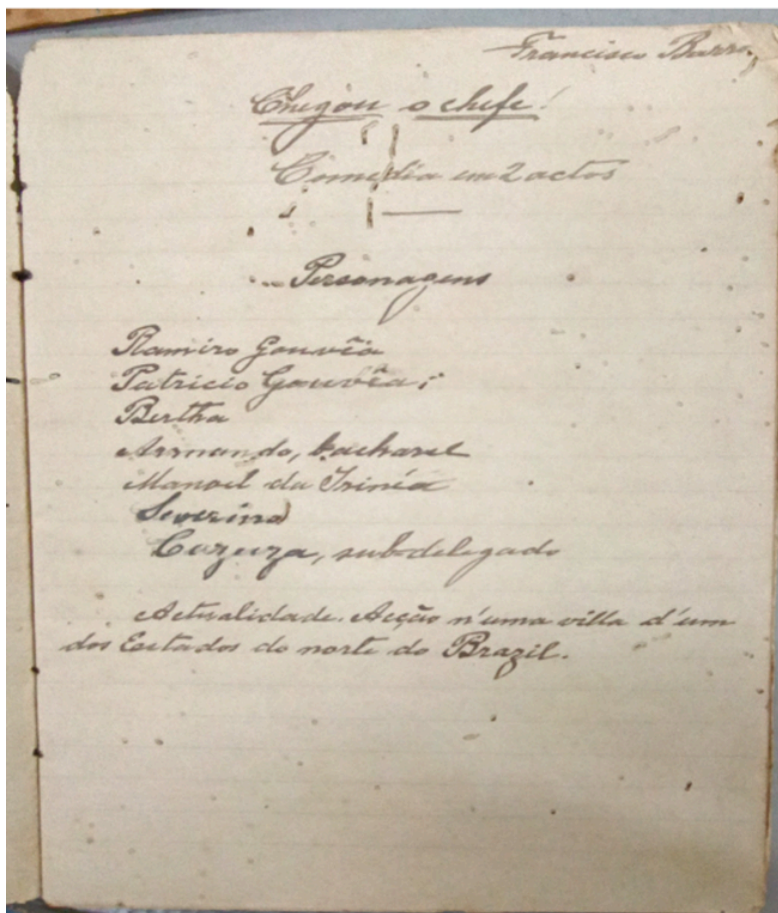 Francisco Barro
Chegou o chefe!
Comedia em 2 actos
Personagens
Ramiro Gouvêa
Patricio Gouvêa;
Bertha
Armando, bacharel
Manoel da Irinéa
Severino
Cazuza, sub-delegado
Actualidade. Acção n'uma villa d'um
dos Estados do norte do Brazil.